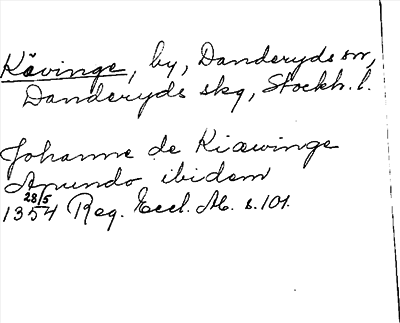 Kävinge, by, Danderyds sn,
Danderyds skg, Stockh. l.
Johanne de Kiæwinge
Apundo ibidem
28/5
1354 Reg. Eccl. M. s. 101.